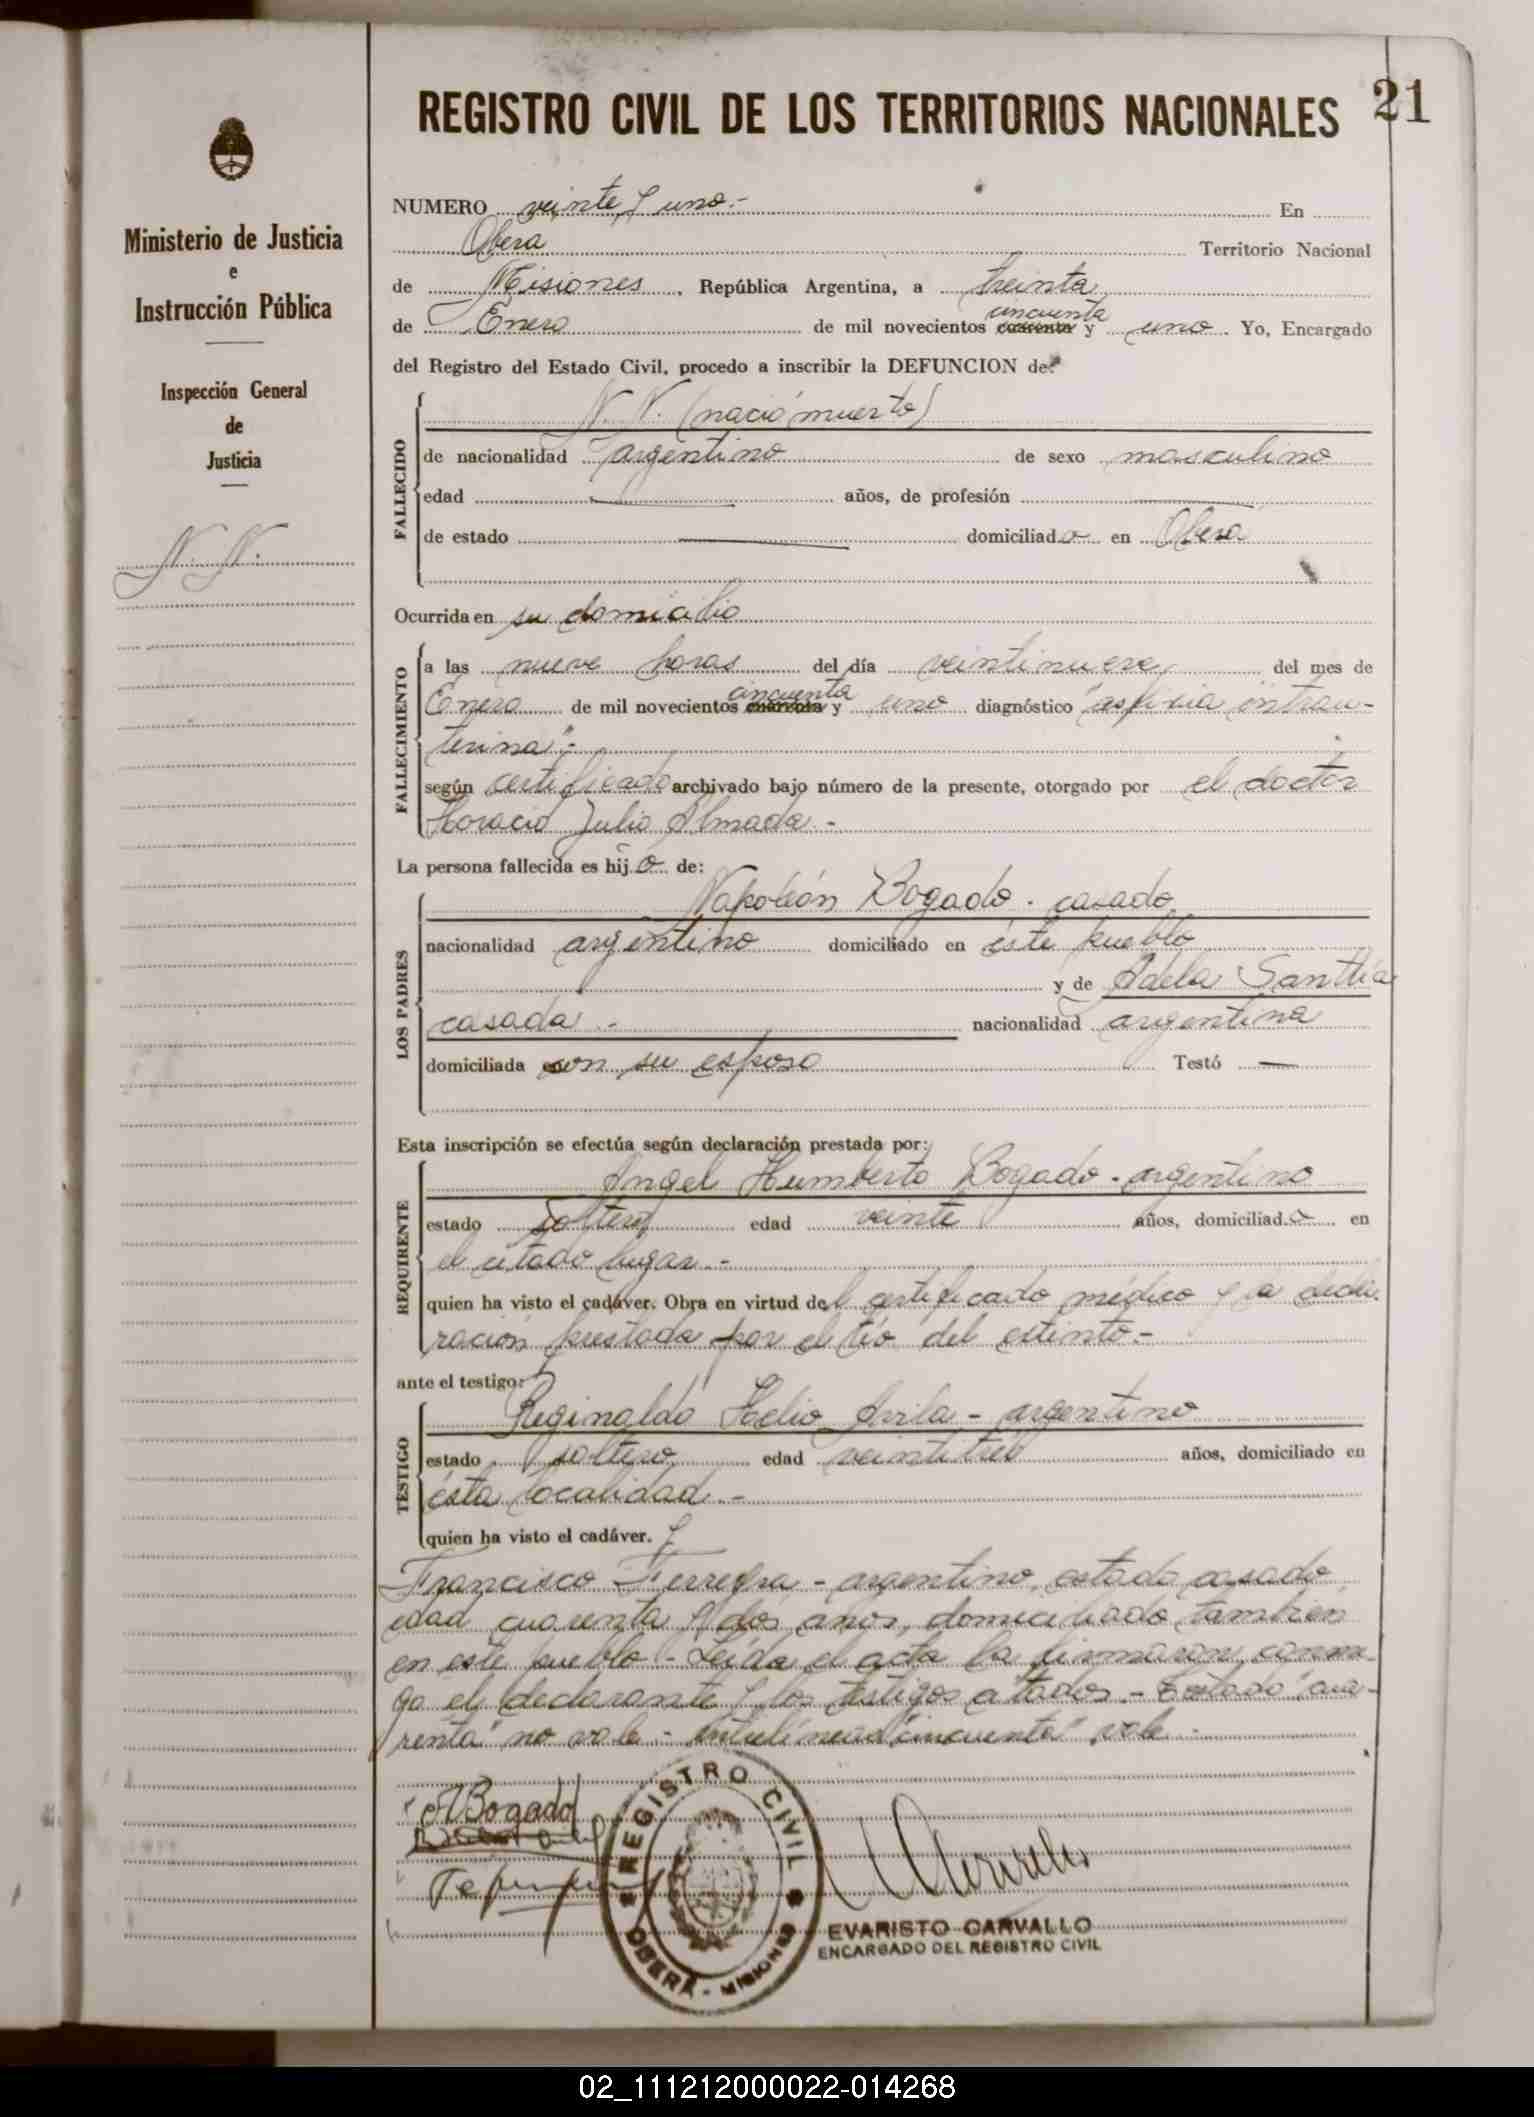 REGISTRO CIVIL DE LOS TERRITORIOS NACIONALES
21
Ministerio de Justicia
e
Instrucción Pública
Inspección General
de
Justicia
N. N.
NUMERO veinte y uno.- En
Oberá Territorio Nacional
de Misiones, República Argentina, a treinta
cincuenta
de Enero de mil novecientos cuarenta y uno Yo, Encargado
del Registro del Estado Civil, procedo a inscribir la DEFUNCION de:
FALLECIDO
N. N. (nació muerto)
de nacionalidad argentino de sexo masculino
edad años, de profesión
de estado domiciliado en Oberá
Ocurrida en su domicilio
FALLECIMIENTO
a las nueve horas del día veintinueve del mes de
cincuenta
Enero de mil novecientos cuarenta y uno diagnóstico "asfixia intrau-
terina".-
según certificado archivado bajo número de la presente, otorgado por el doctor
Horacio Julio Almada.-
La persona fallecida es hijo de:
LOS PADRES
Napoleón Bogado - casado
nacionalidad argentino domiciliado en éste pueblo
y de Adela Santhia
casada.- nacionalidad argentina
domiciliada con su esposo Testó —
Esta inscripción se efectúa según declaración prestada por:
REQUIRENTE
Angel Humberto Bogado - argentino
estado soltero edad veinte años, domiciliado en
el citado lugar.-
quien ha visto el cadáver. Obra en virtud del certificado médico y a decla-
ración prestada por el tío del extinto.-
ante el testigo:
TESTIGO
Reginaldo Helio Avila - argentino
estado soltero edad veintitrés años, domiciliado en
ésta localidad.-
quien ha visto el cadáver. y
Francisco Ferreyra - argentino, estado casado
edad cuarenta y dos años, domiciliado también
en este pueblo.- Leída el acta la firmaron conmi-
go el declarante y los testigos citados.- Testado "cua-
renta" no vale - entrelíneas "cincuenta" vale.-
AHBogado
REGISTRO CIVIL
OBERÁ - MISIONES
EVARISTO CARVALLO
ENCARGADO DEL REGISTRO CIVIL
02_111212000022-014268